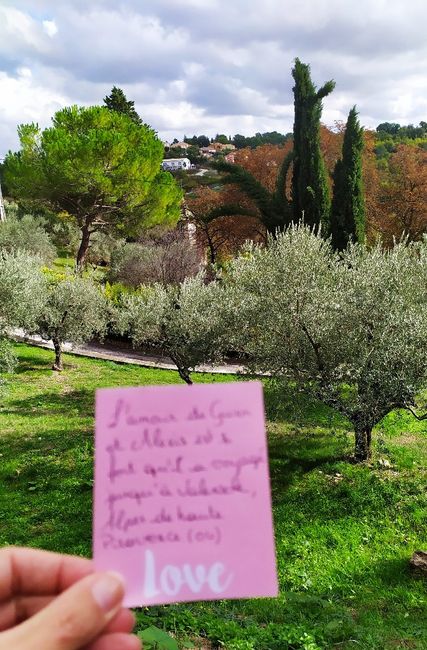 L'amour de
et Alexis est si
fort qu'il a voyagé
jusqu'à Valensole,
Alpes de haute
Provence (04)
Love